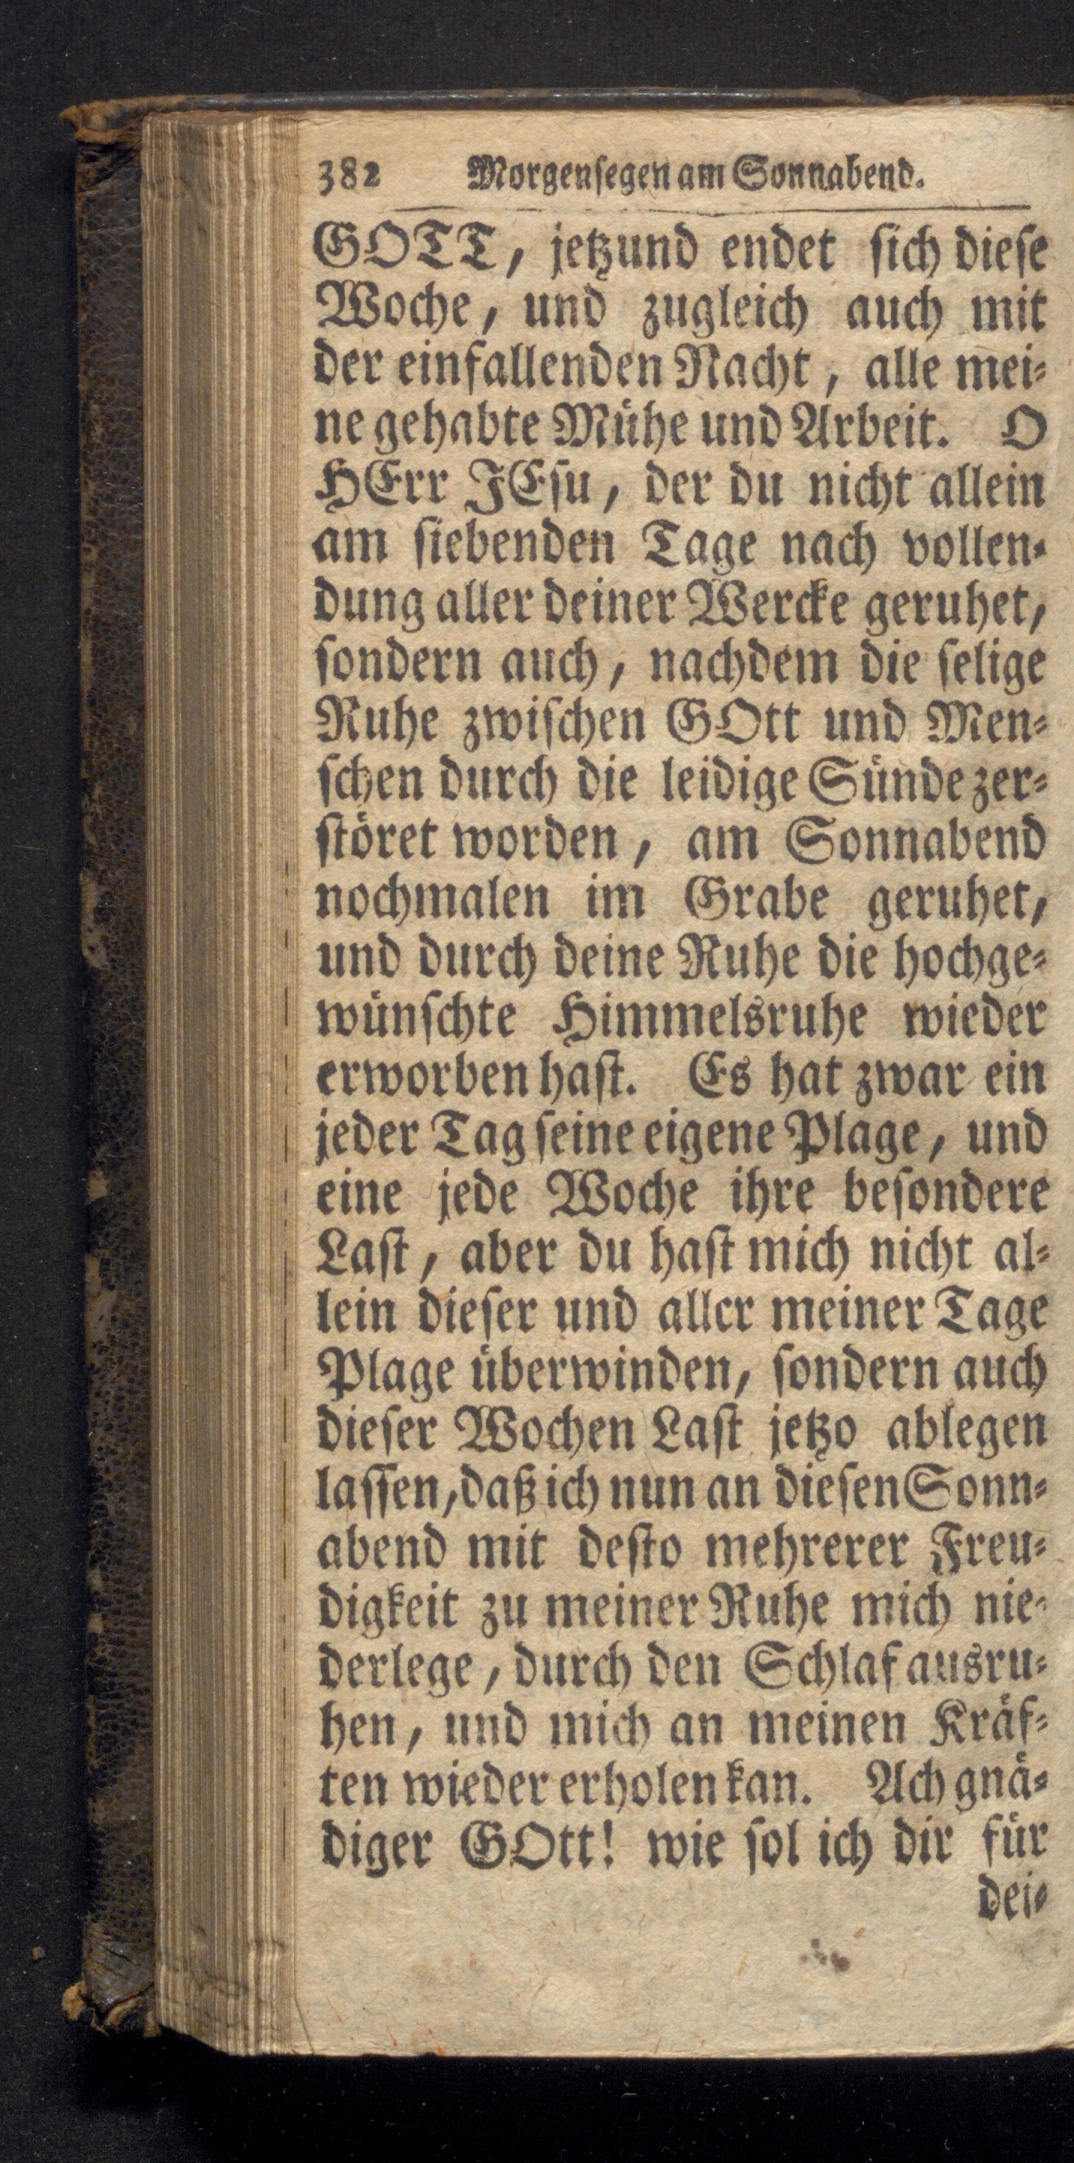 382 Morgenſegen am Sonnabend.
GOTT, jetzund endet ſich dieſe
Woche, und zugleich auch mit
der einfallenden Nacht, alle mei⸗
ne gehabte Mühe und Arbeit. O
HErr JEſu, der du nicht allein
am ſiebenden Tage nach vollen⸗
dung aller deiner Wercke geruhet,
ſondern auch, nachdem die ſelige
Ruhe zwiſchen GOtt und Men⸗
ſchen durch die leidige Sünde zer⸗
ſtöret worden, am Sonnabend
nochmalen im Grabe geruhet,
und durch deine Ruhe die hochge⸗
wünſchte Himmelsruhe wieder
erworben haſt. Es hat zwar ein
jeder Tag ſeine eigene Plage, und
eine jede Woche ihre beſondere
Laſt, aber du haſt mich nicht al⸗
lein dieſer und aller meiner Tage
Plage überwinden, ſondern auch
dieſer Wochen Laſt jetzo ablegen
laſſen, daß ich nun an dieſen Sonn⸗
abend mit deſto mehrerer Freu⸗
digkeit zu meiner Ruhe mich nie⸗
derlege, durch den Schlaf ausru⸗
hen, und mich an meinen Kräf⸗
ten wieder erholen kan. Ach gnä⸗
diger GOtt! wie ſol ich dir für
dei⸗